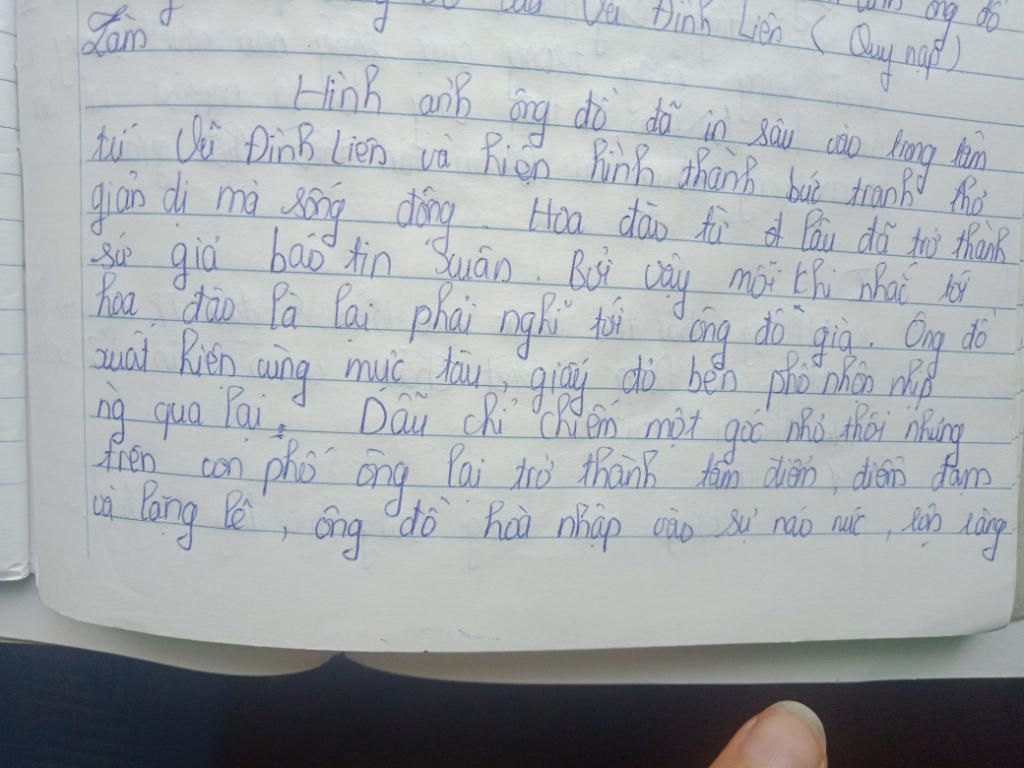 Vũ Đình Liên ( Quy nạp)
Làm
Hình ảnh ông đồ đã in sâu vào trong tâm
tứ Vũ Đình Liên và hiện hình thành bức tranh thơ
giản dị mà sống động. Hoa đào từ lâu đã trở thành
sứ giả báo tin xuân. Bởi vậy mỗi khi nhắc tới
hoa đào là lại phải nghĩ tới ông đồ già. Ông đồ
xuất hiện cùng mực tàu, giấy đỏ bên phố nhộn nhịp
ng qua lại. Dẫu chỉ chiếm một góc nhỏ thôi nhưng
trên con phố ông lại trở thành tâm điểm, điềm đạm
và lặng lẽ, ông đồ hoà nhập vào sự náo nức, rộn ràng